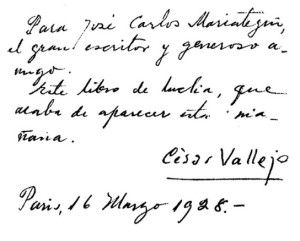 Para José Carlos Mariátegui,
el gran escritor y generoso a-
migo.
Este libro de lucha, que
acaba de aparecer esta ma-
ñana.
César Vallejo
Paris, 16 Marzo 1928.-